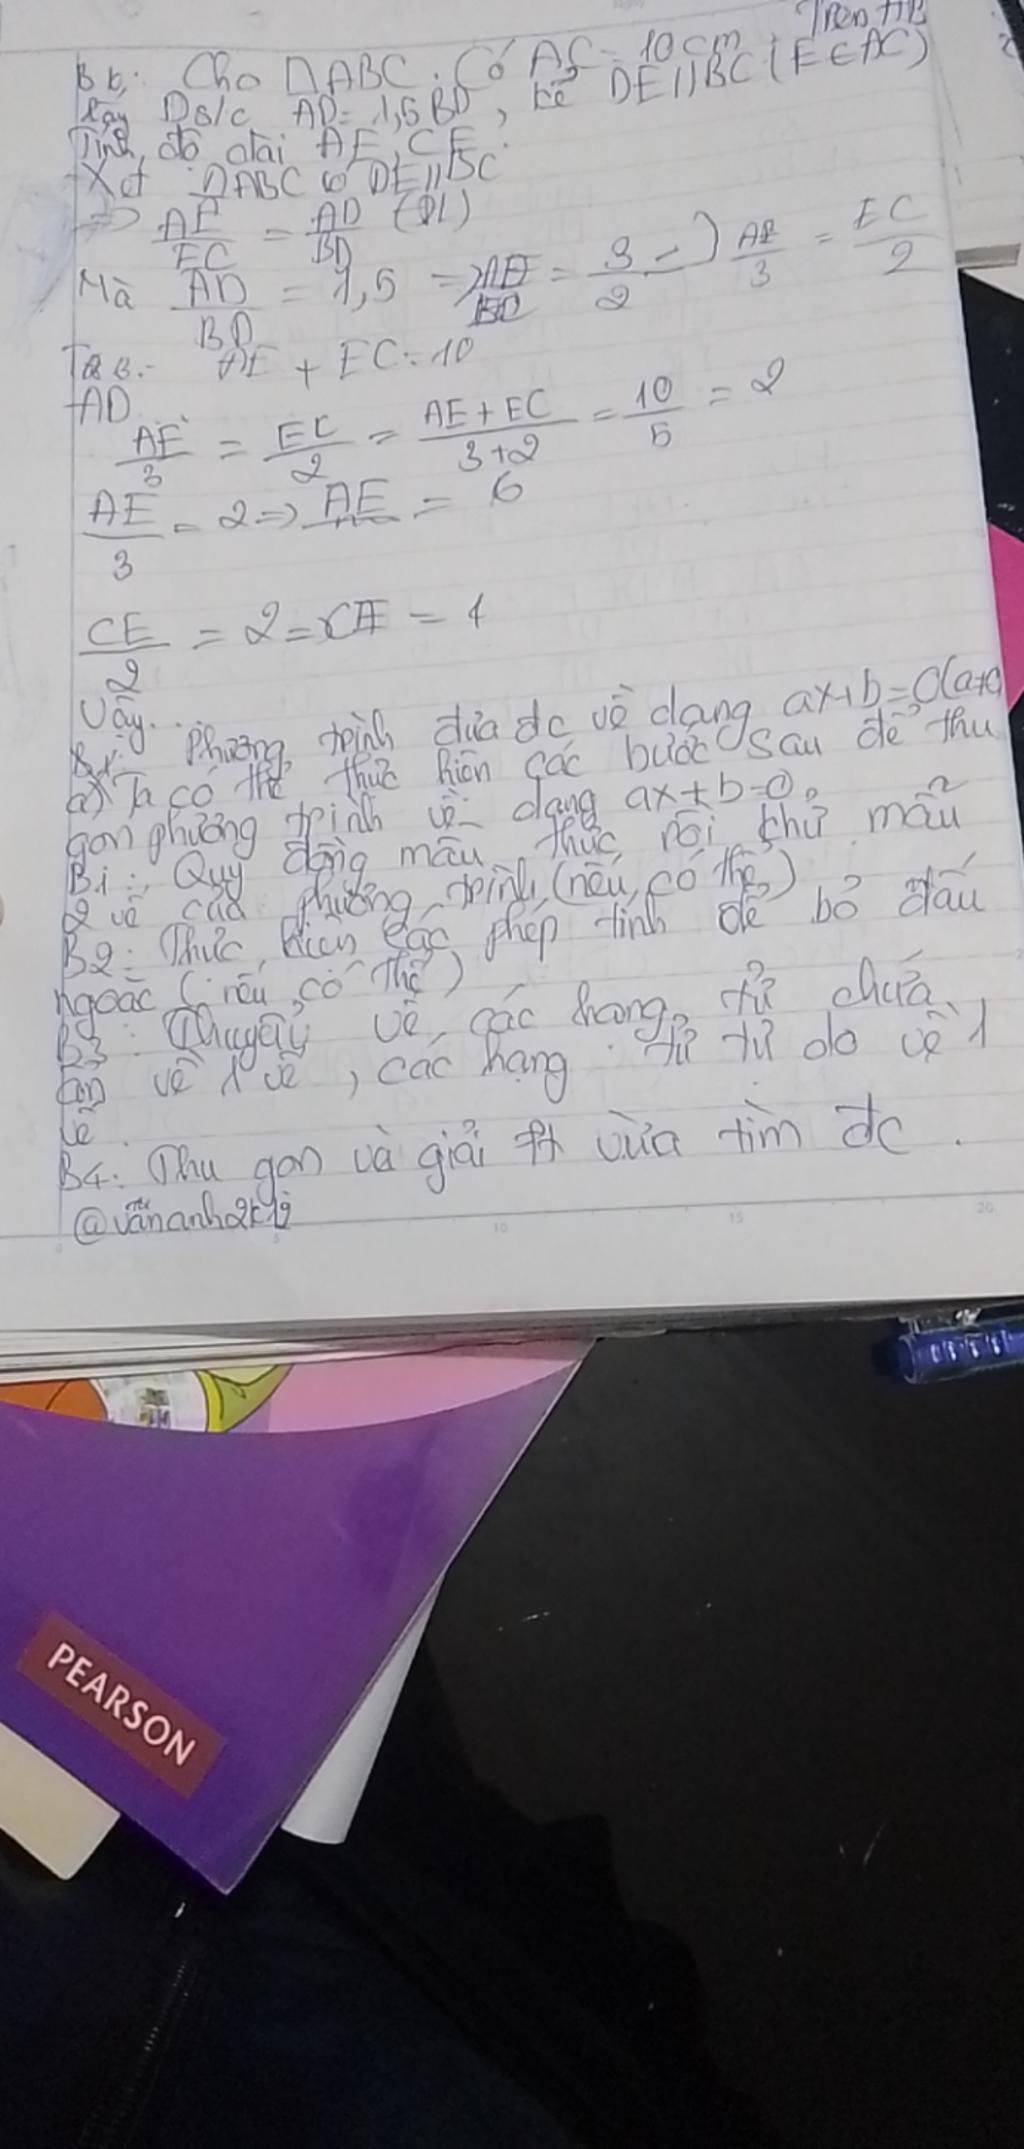 Trên AB
B6: Cho ΔABC. Có AC = 10cm.
lấy D s/c AD = 1,5BD, kẻ DE//BC (E∈AC)
Tính độ dài AE, CE.
Xét ΔABC có DE//BC
=> AE/EC = AD/BD (ĐL)
Mà AD/BD = 1,5 => AE/EC = 3/2 => AE/3 = EC/2
AE + EC = 10
AD
AE/3 = EC/2 = AE+EC/3+2 = 10/5 = 2
AE/3 = 2 => AE = 6
CE/2 = 2 => CE = 4
Vậy...
Phương trình đưa đc về dạng ax+b=0(a≠0
a) Ta có thể thực hiện các bước sau để thu
gọn phương trình về dạng ax+b=0.
B1: Quy đồng mẫu thức rồi khử mẫu
2 vế của phương trình (nếu có thể)
B2: Thực hiện các phép tính để bỏ dấu
ngoặc (nếu có thể)
B3: Chuyển vế các hạng tử chứa
ẩn về 1 vế, các hạng tử tử do về 1
vế.
B4: Thu gọn và giải pt vừa tìm đc.
@vananh2k9
5 10 15 20
PEARSON